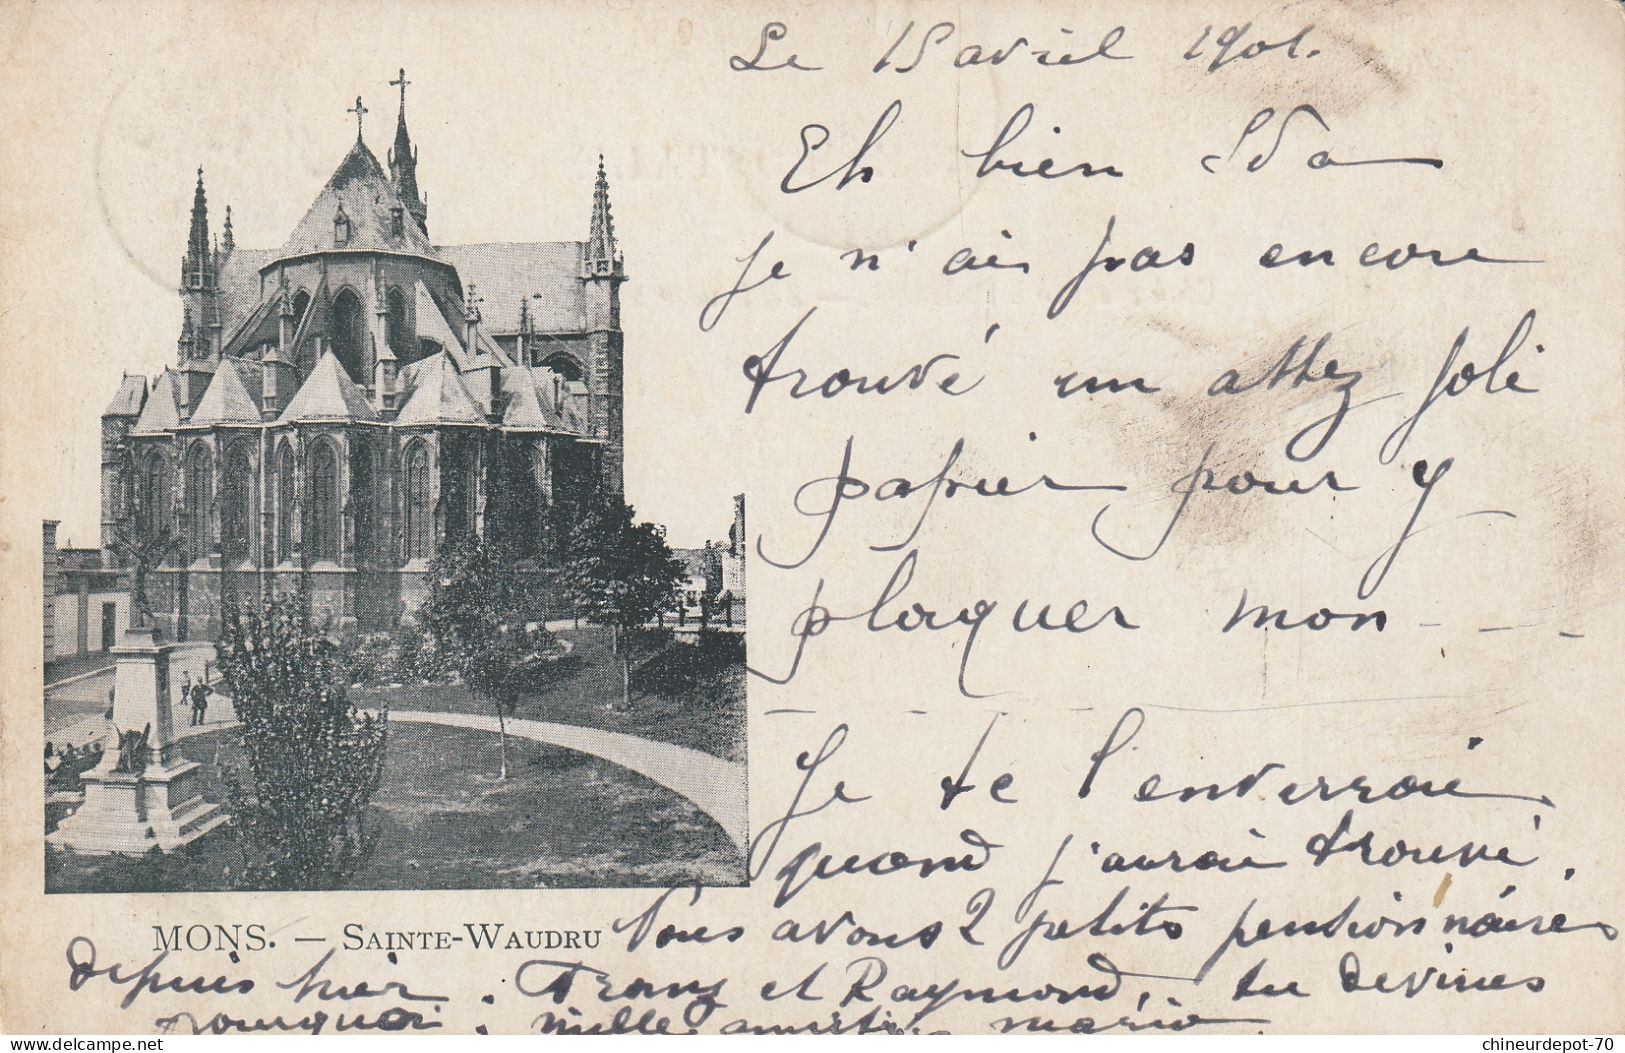 Le 15 avril 1901.
Eh bien Ida
je n'ai pas encore
trouvé un assez joli
papier pour y
plaquer mon - - -
Je te l'enverrai
quand j'aurai trouvé.
MONS. — SAINTE-WAUDRU
Nous avons 2 petits pensionnaires
depuis hier. Franz et Raymond, tu devines
pourquoi. mille amitiés. maria
chineurdepot-70